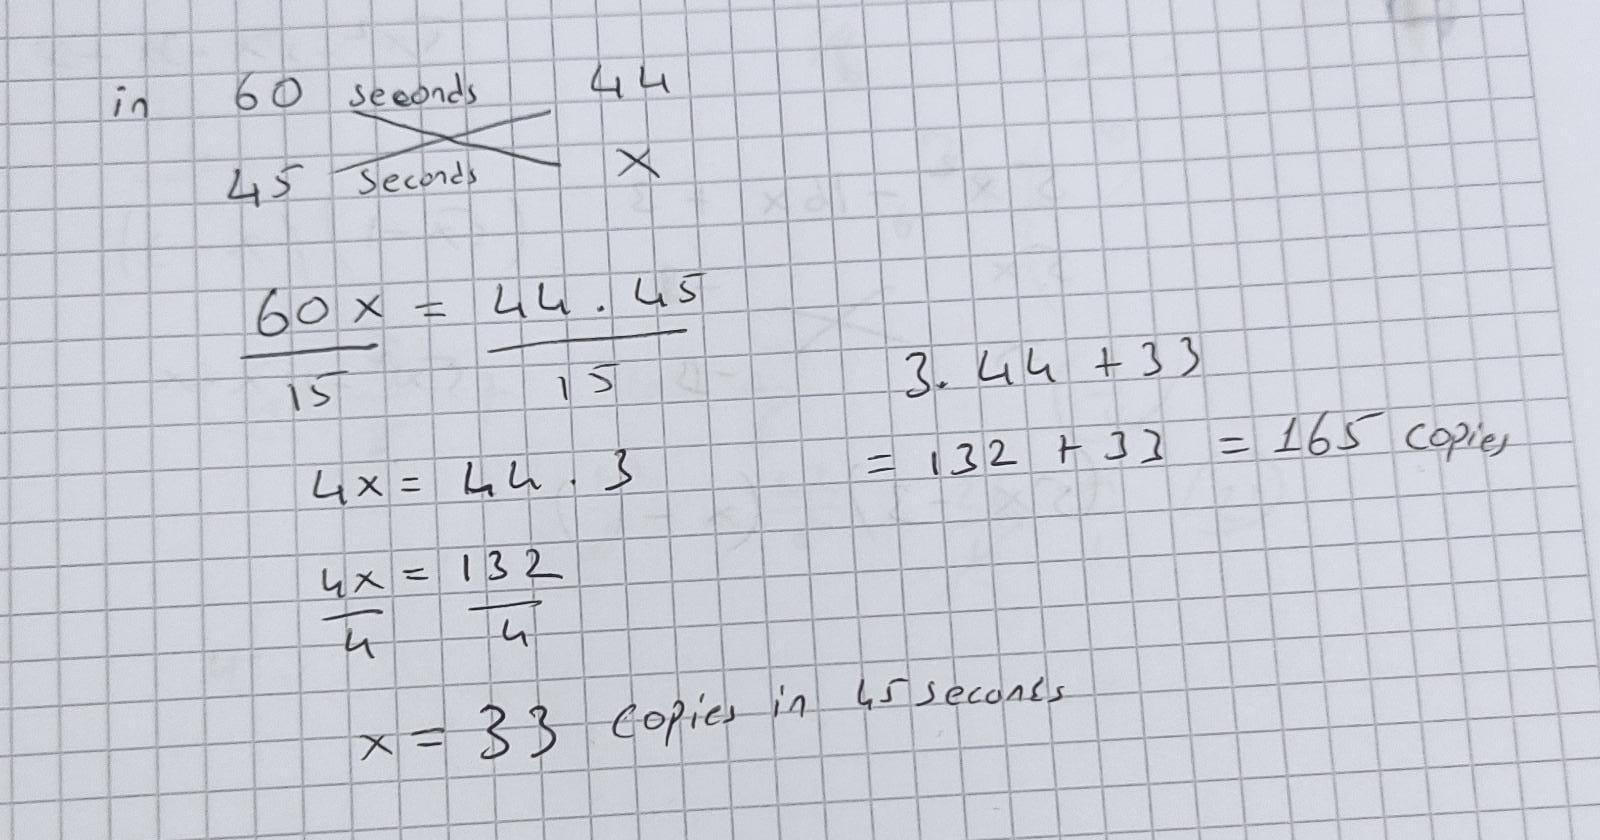 in 60 seconds 44
45 seconds x
60x = 44 . 45
15 15
4x = 44 . 3
4x = 132
4 4
x = 33 copies in 45 seconds
3. 44 + 33
= 132 + 33 = 165 copies